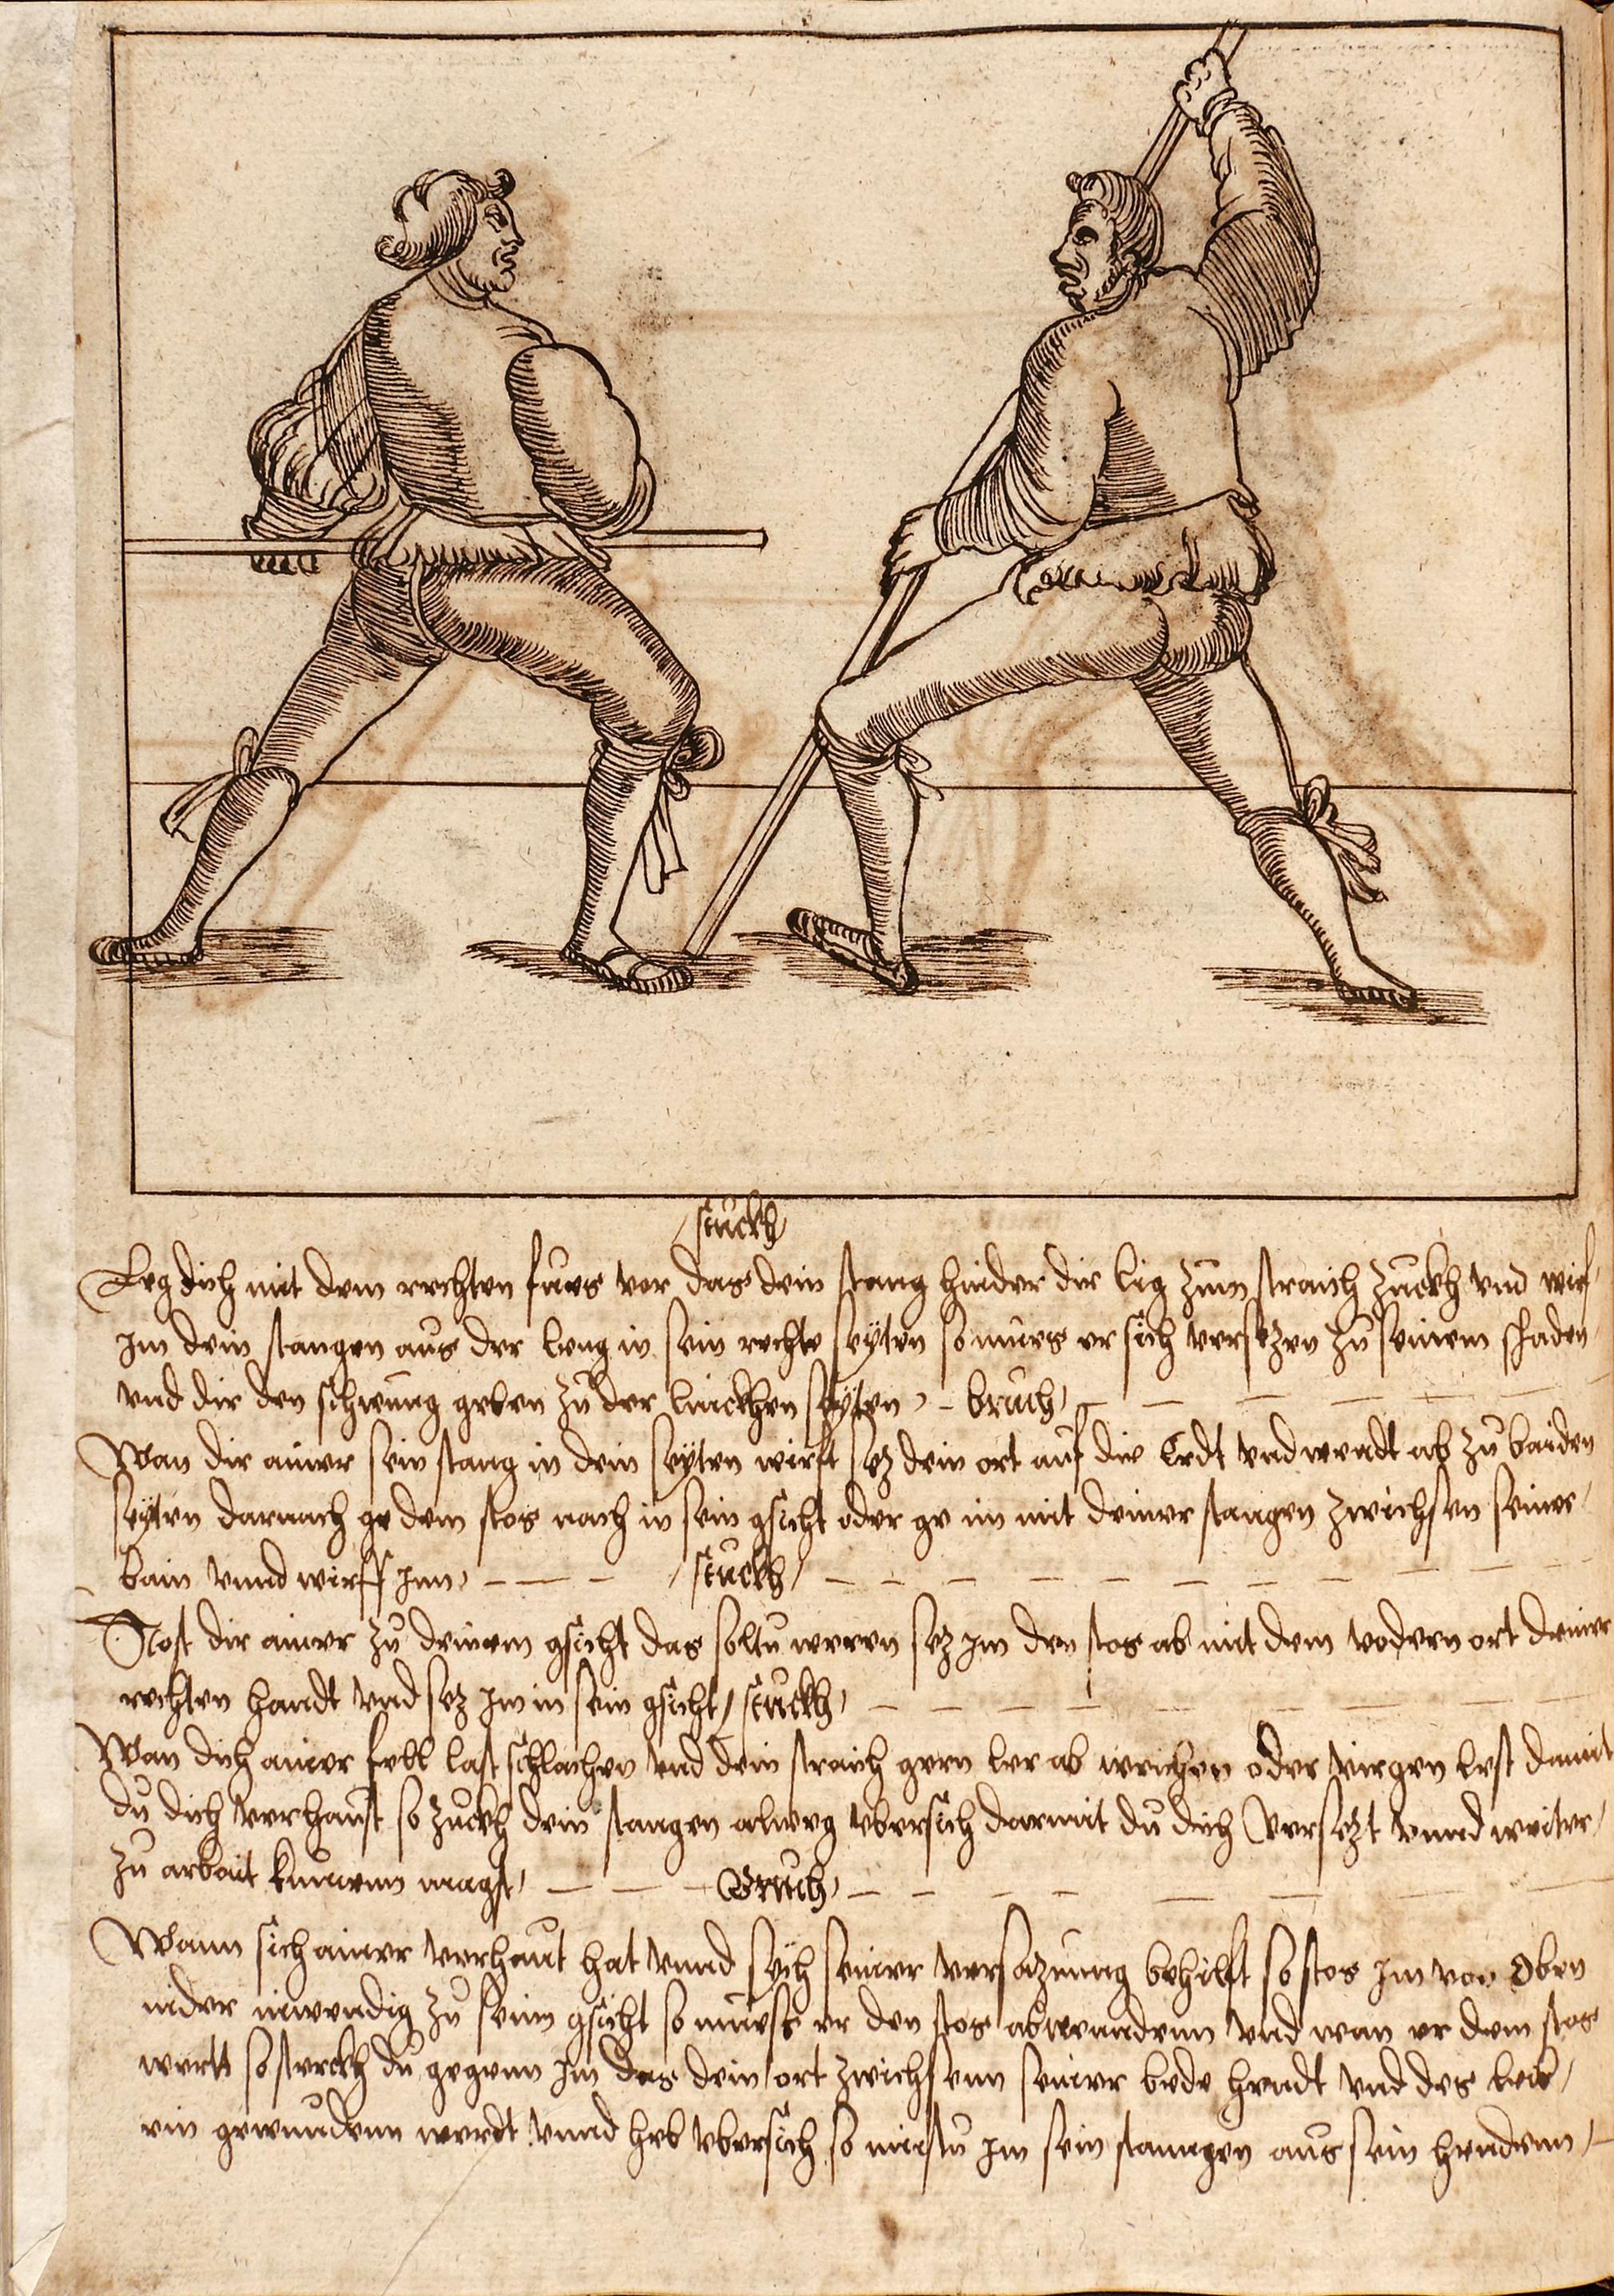 stuckh
Leg dich mit dem rechten fues vor das dein stang hinder dir lig zum straich zuckh vnd wirf
im dein stangen aus der leng in sein rechte seyten so mues er sich versezen zu seinem schaden
vnd dir den schwung geben zu der linckhen seyten - bruch
Wan dir ainer sein stang in dein seyten wirft sez dein ort auf die Erdt vnd wendt ab zu baiden
seyten darnach ge dem stos nach in sein gsicht oder ge im mit deiner stangen zwichsen seine
bain vnnd wirff Inn - - - stuckh
Stost dir ainer zu deinem gsicht das soltu weren sez im den stos ab mit dem vodern ort deiner
rechten handt vnd sez im in sein gsicht / stuckh
Wan dich ainer fell last schlachen vnd dein straich gern ler ab weichen oder virgen lest damit
du dich verhaust so zuckh dein stangen alweg vbersich darmit du dich versezt vnnd weiter
zu arbait kumenn magst - - - Bruch
Wann sich ainer verhaut hat vnnd sych seiner versazung behilft so stos im von oben
nider inwendig zu seim gsicht so muess er den stos abwendenn vnd wan er dem stos
wertt so sterckh du gegenn im das dein ort zwichsenn seiner bede hendt vnd des leib
ein gewundenn werdt vnnd heb vbersich so nimstu im sein stanngen aus sein hendenn